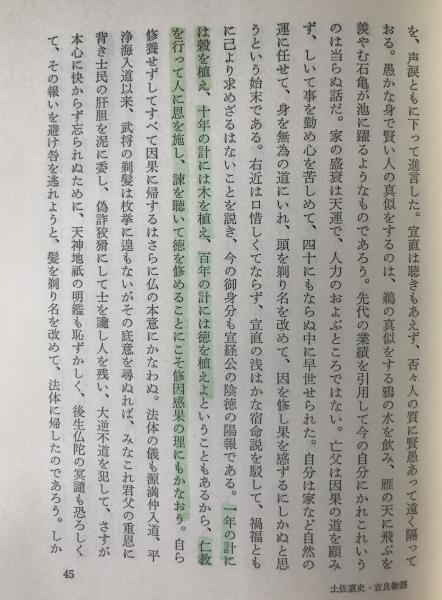 を、声涙ともに下って進言した。宣直は聴きもあえず、否々人の質に賢愚あって遠く隔って
おる。愚かな身で賢い人の真似をするのは、鵜の真似をする鴉の水を飲み、雁の天に飛ぶを
羨やむ石亀が池に躍るようなものであろう。先代の業績を引用して今の自分にかれこれいう
のは当らぬ話だ。家の盛衰は天運で、人力のおよぶところではない。亡父は因果の道を顧み
ず、しいて事を勤め心を苦しめて、四十にもならぬ中に早世せられた。自分は家など自然の
運に任せて、身を無為の道にいれ、頭を剃り名を改めて、因を修し果を感ずるにしかぬと思
うという始末である。右近は口惜しくてならず、宣直の浅はかな宿命説を駁して、禍福とも
に己より求めざるはないことを説き、今の御身分も宣経公の陰徳の陽報である。一年の計に
は穀を植え、十年の計には木を植え、百年の計には徳を植えよということもあるから、仁教
を行って人に恩を施し、諫を聴いて徳を修めることにこそ修因感果の理にもかなおう。自ら
修養せずしてすべて因果に帰するはさらに仏の本意にかなわぬ。法体の儀も源満仲入道、平
浄海入道以来、武将の剃髪は枚挙に遑もないがその底意を尋ぬれば、みなこれ君父の重恩に
背き士民の肝胆を泥に委し、偽詐狡猾にして士を讒し人を残い、大逆不道を犯して、さすが
本心に快からず忘られぬために、天神地祇の明鑑も恥ずかしく、後生仏陀の冥譴も恐ろしく
て、その報いを避け咎を逃れようと、髪を剃り名を改めて、法体に帰したのであろう。しか
45
土佐哀史・吉良物語